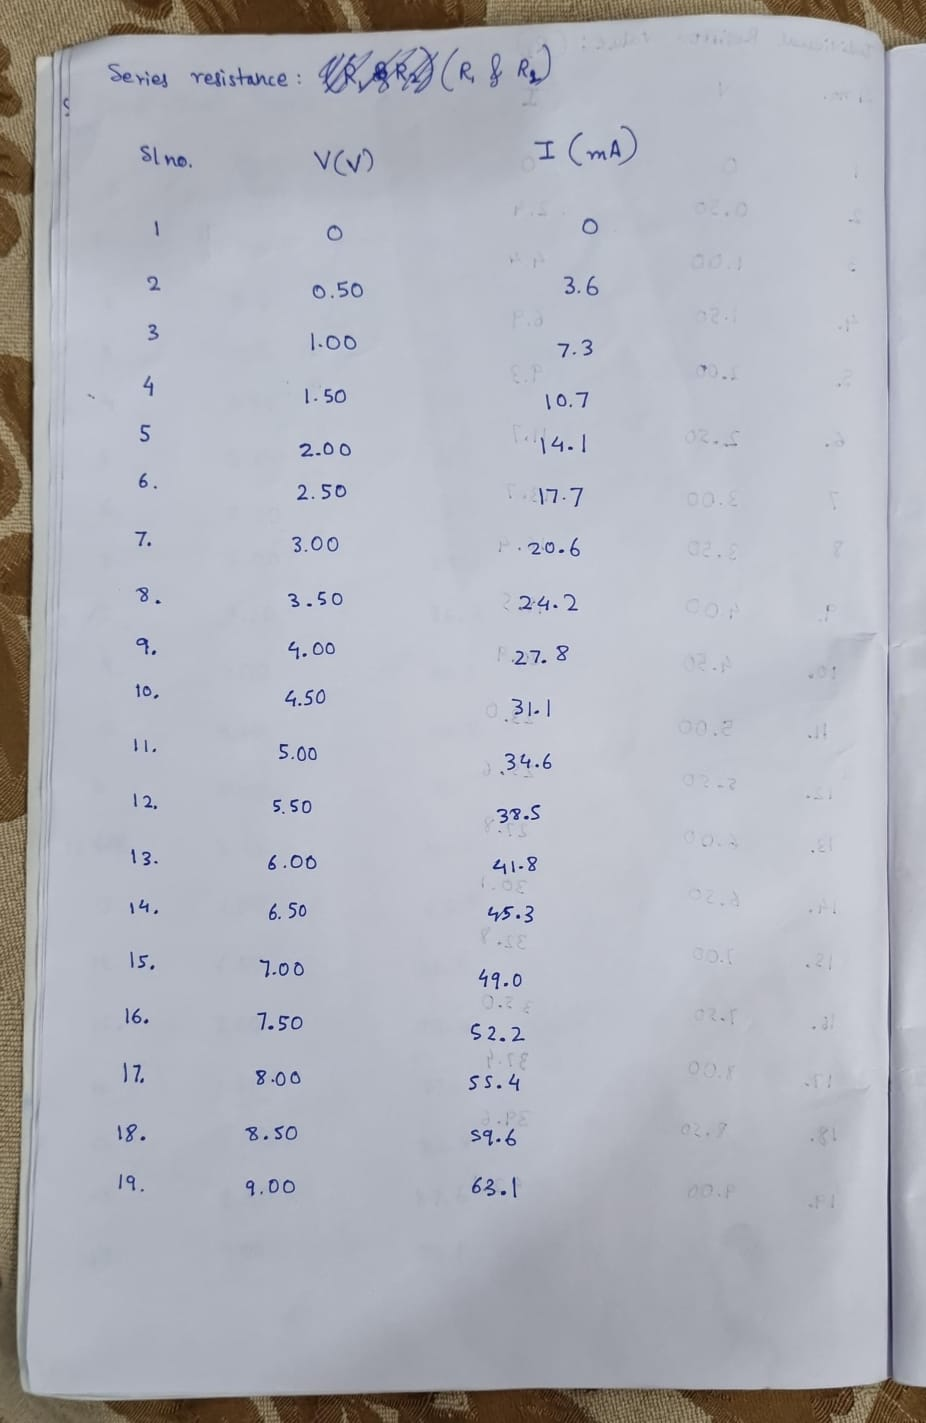 Series resistance: (R₁ & R₂)
Sl no. V(V) I (mA)
1 0 0
2 0.50 3.6
3 1.00 7.3
4 1.50 10.7
5 2.00 14.1
6. 2.50 17.7
7. 3.00 20.6
8. 3.50 24.2
9. 4.00 27.8
10. 4.50 31.1
11. 5.00 34.6
12. 5.50 38.5
13. 6.00 41.8
14. 6.50 45.3
15. 7.00 49.0
16. 7.50 52.2
17. 8.00 55.4
18. 8.50 59.6
19. 9.00 63.1